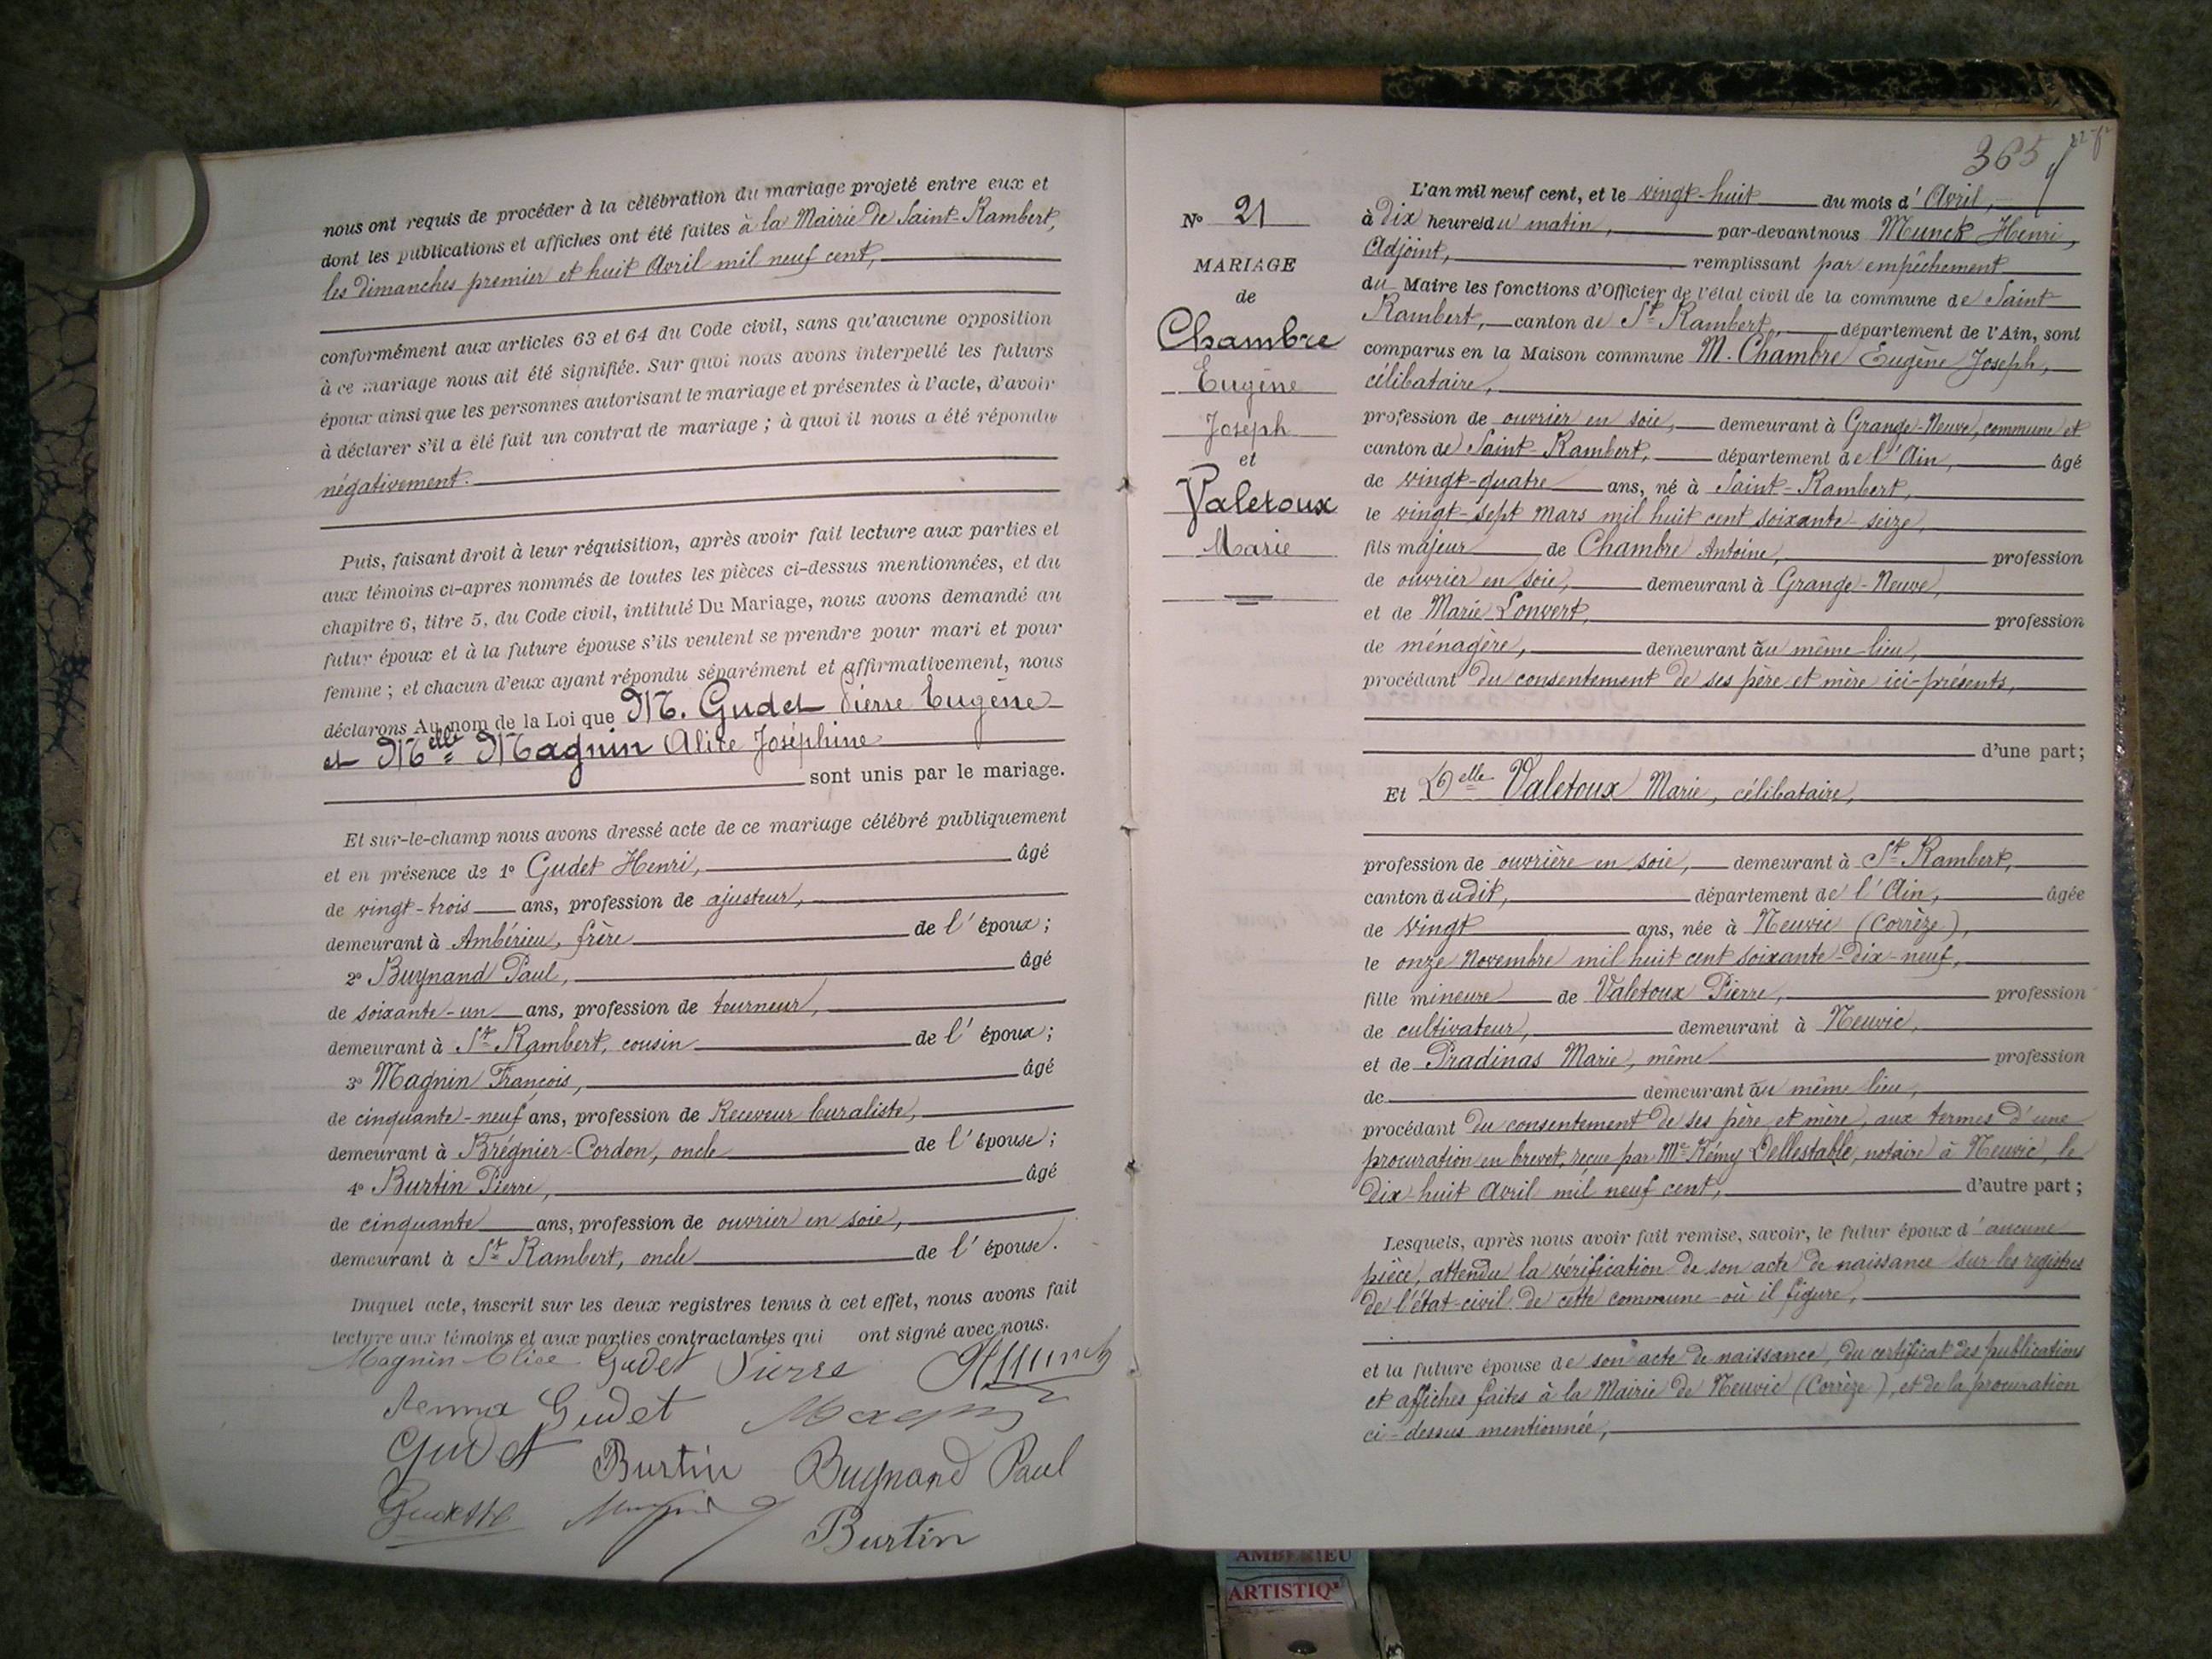 nous ont requis de procéder à la célébration du mariage projeté entre eux et
dont les publications et affiches ont été faites à la Mairie de Saint-Rambert,
les dimanches premier et huit Avril mil neuf cent,
conformément aux articles 63 et 64 du Code civil, sans qu'aucune opposition
à ce mariage nous ait été signifiée. Sur quoi nous avons interpellé les futurs
époux ainsi que les personnes autorisant le mariage et présentes à l'acte, d'avoir
à déclarer s'il a été fait un contrat de mariage ; à quoi il nous a été répondu
négativement.
Puis, faisant droit à leur réquisition, après avoir fait lecture aux parties et
aux témoins ci-apres nommés de toutes les pièces ci-dessus mentionnées, et du
chapitre 6, titre 5, du Code civil, intitulé Du Mariage, nous avons demandé au
futur époux et à la future épouse s'ils veulent se prendre pour mari et pour
femme ; et chacun d'eux ayant répondu séparément et affirmativement, nous
déclarons Au nom de la Loi que M. Gudet Pierre Eugène
et Melle Magnin Alice Joséphine
sont unis par le mariage.
Et sur-le-champ nous avons dressé acte de ce mariage célébré publiquement
et en présence de 1° Gudet Henri, âgé
de vingt-trois ans, profession de ajusteur,
demeurant à Ambérieu, frère de l'époux ;
2° Buynand Paul, âgé
de soixante-un ans, profession de tourneur,
demeurant à St Rambert, cousin de l'époux ;
3° Magnin François, âgé
de cinquante-neuf ans, profession de Receveur buraliste,
demeurant à Brégnier-Cordon, oncle de l'épouse ;
4° Burtin Pierre, âgé
de cinquante ans, profession de ouvrier en soie,
demeurant à St Rambert, oncle de l'épouse.
Duquel acte, inscrit sur les deux registres tenus à cet effet, nous avons fait
lecture aux témoins et aux parties contractantes qui ont signé avec nous.
Magnin Gudet Pierre
Gudet
Gudet Burtin Buynand Paul
Burtin
365
N° 21
MARIAGE
de
Chambre
Eugène
Joseph
et
Valetoux
Marie
L'an mil neuf cent, et le vingt-huit du mois d'Avril,
à dix heures du matin, par-devant nous Munck Henri,
Adjoint, remplissant par empêchement
du Maire les fonctions d'Officier de l'état civil de la commune de Saint
Rambert, canton de St Rambert, département de l'Ain, sont
comparus en la Maison commune M. Chambre Eugène Joseph,
célibataire,
profession de ouvrier en soie, demeurant à Grange-Neuve, commune et
canton de Saint-Rambert, département de l'Ain, âgé
de vingt-quatre ans, né à Saint-Rambert,
le vingt-sept Mars mil huit cent soixante-seize,
fils majeur de Chambre Antoine, profession
de ouvrier en soie, demeurant à Grange-Neuve,
et de Marie Lonvert, profession
de ménagère, demeurant au même lieu,
procédant du consentement de ses père et mère ici-présents,
d'une part ;
Et Delle Valetoux Marie, célibataire,
profession de ouvrière en soie, demeurant à St Rambert,
canton dudit, département de l'Ain, âgée
de vingt ans, née à Neuvic (Corrèze),
le onze Novembre mil huit cent soixante-dix-neuf,
fille mineure de Valetoux Pierre, profession
de cultivateur, demeurant à Neuvic,
et de Pradinas Marie, même profession
de demeurant au même lieu,
procédant du consentement de ses père et mère, aux termes d'une
procuration en brevet, reçue par Me Rémy Dellestable, notaire à Neuvic, le
dix-huit Avril mil neuf cent, d'autre part ;
Lesquels, après nous avoir fait remise, savoir, le futur époux d'aucune
pièce, attendu la vérification de son acte de naissance sur les registres
de l'état-civil de cette commune où il figure,
et la future épouse de son acte de naissance, du certificat des publications
et affiches faites à la Mairie de Neuvic (Corrèze), et de la procuration
ci-dessus mentionnée,
AMBERIEU
ARTISTIQ